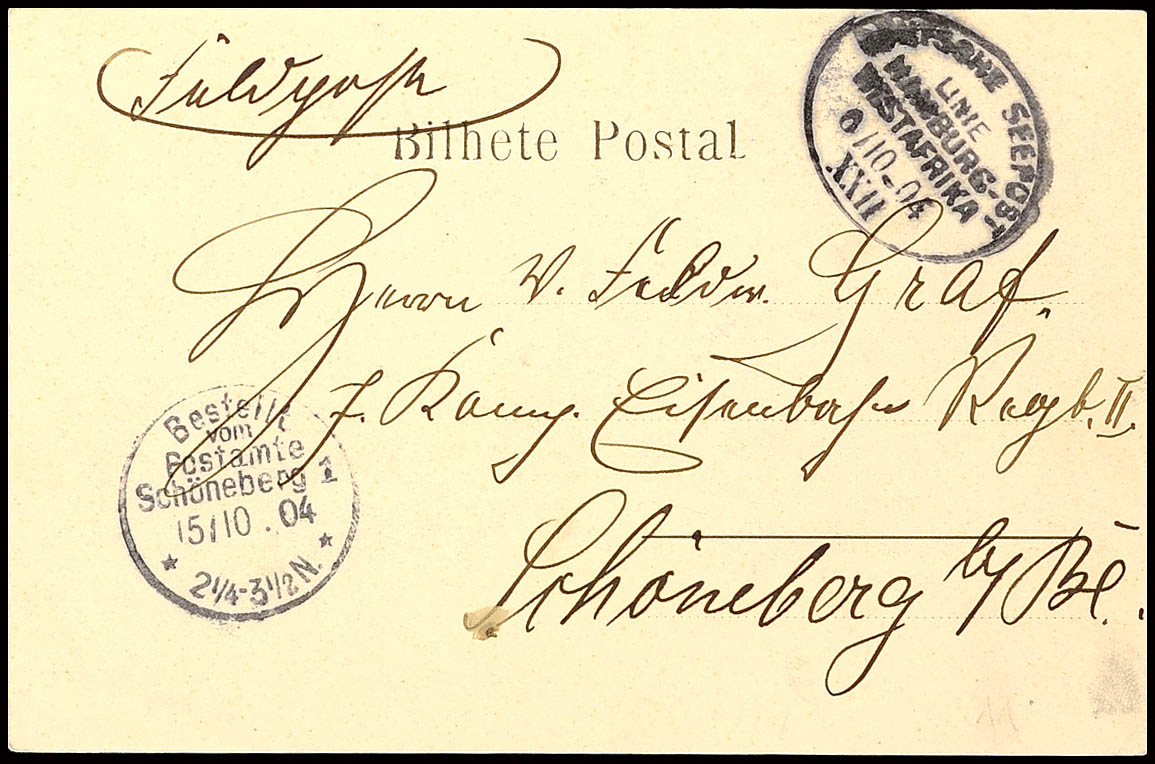 Feldpost
Bilhete Postal
DEUTSCHE SEEPOST
LINIE
HAMBURG-
WESTAFRIKA
/10-04
XXII
Herrn V. Feldw. Graf.
7. Komp. Eisenbahn Regt. II.
Schöneberg b/ Be.
Bestellt
vom
Postamte
Schöneberg 1
15/10.04
2 1/4-3 1/2 N.